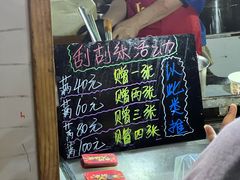 刮刮张活动
满40元 赠一张
满60元 赠两张
满80元 赠三张
满100元 赠四张
以此类推